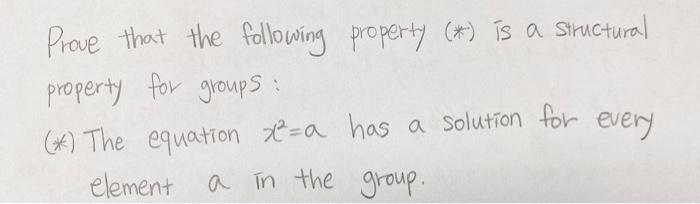 Prove that the following property (*) is a structural
property for groups :
(*) The equation x²=a has a solution for every
element a in the group.